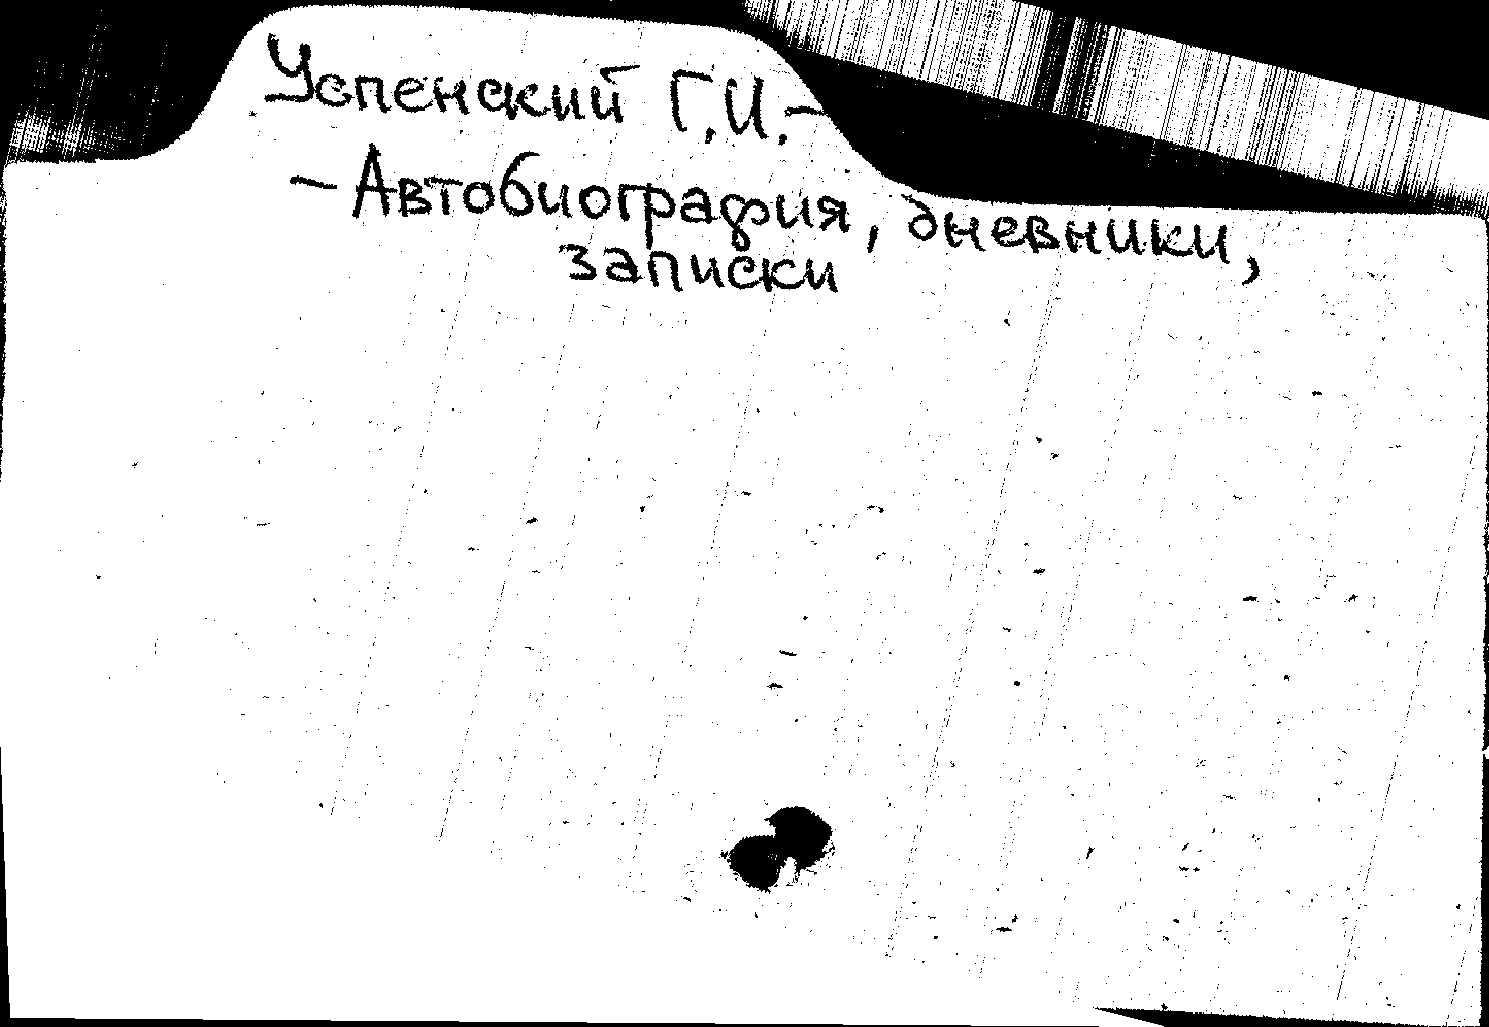 Успенский Г.И.–
– Автобиография, дневники,
записки